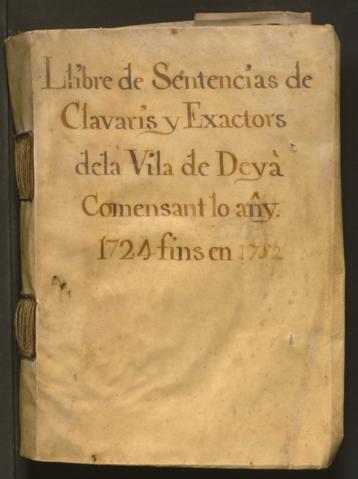 Llibre de Sentencias de
Clavaris y Exactors
dela Vila de Deyà
Comensant lo añy.
1724 fins en 1752